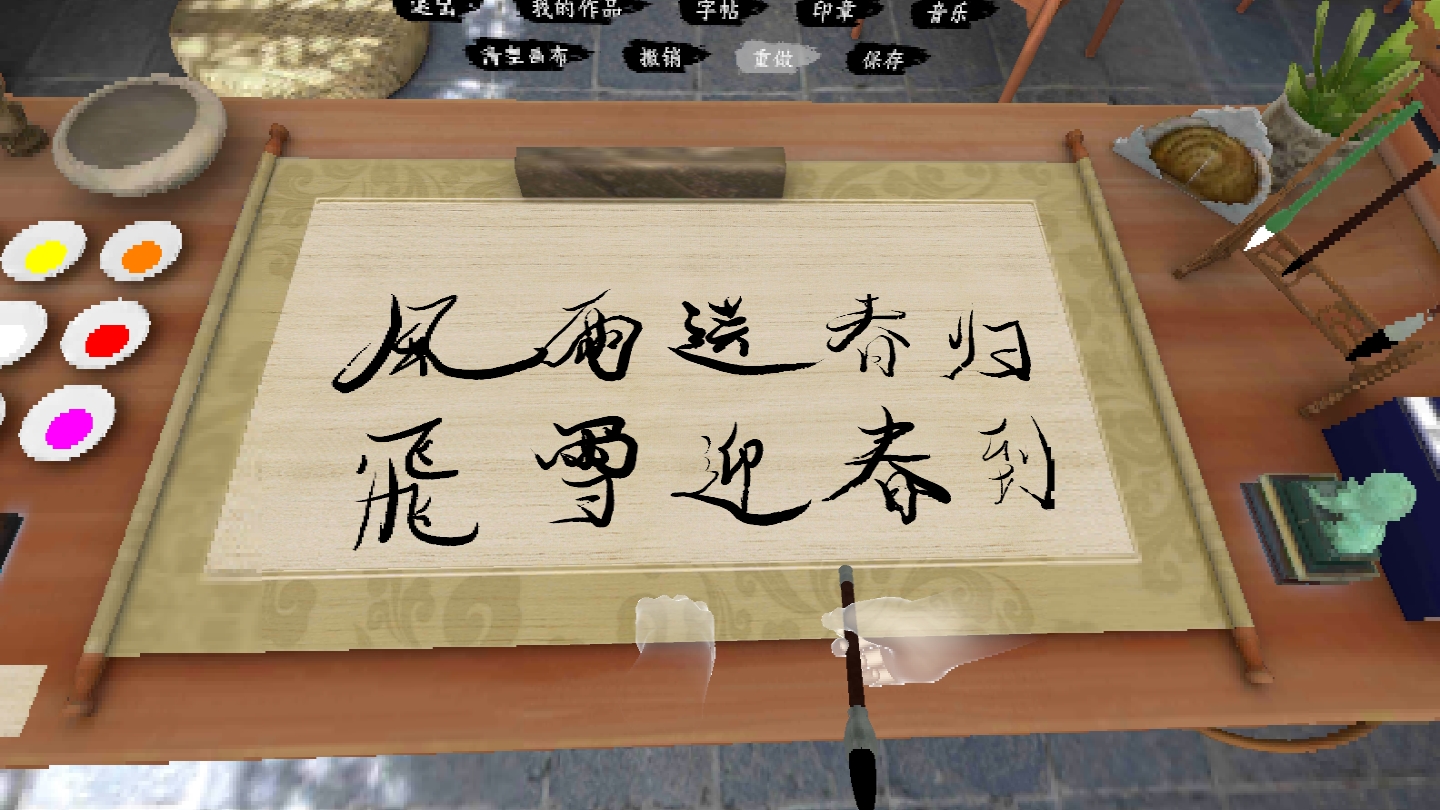 退出 我的作品 字帖 印章 音乐
清空画布 撤销 重做 保存
风雨送春归
飛雪迎春到